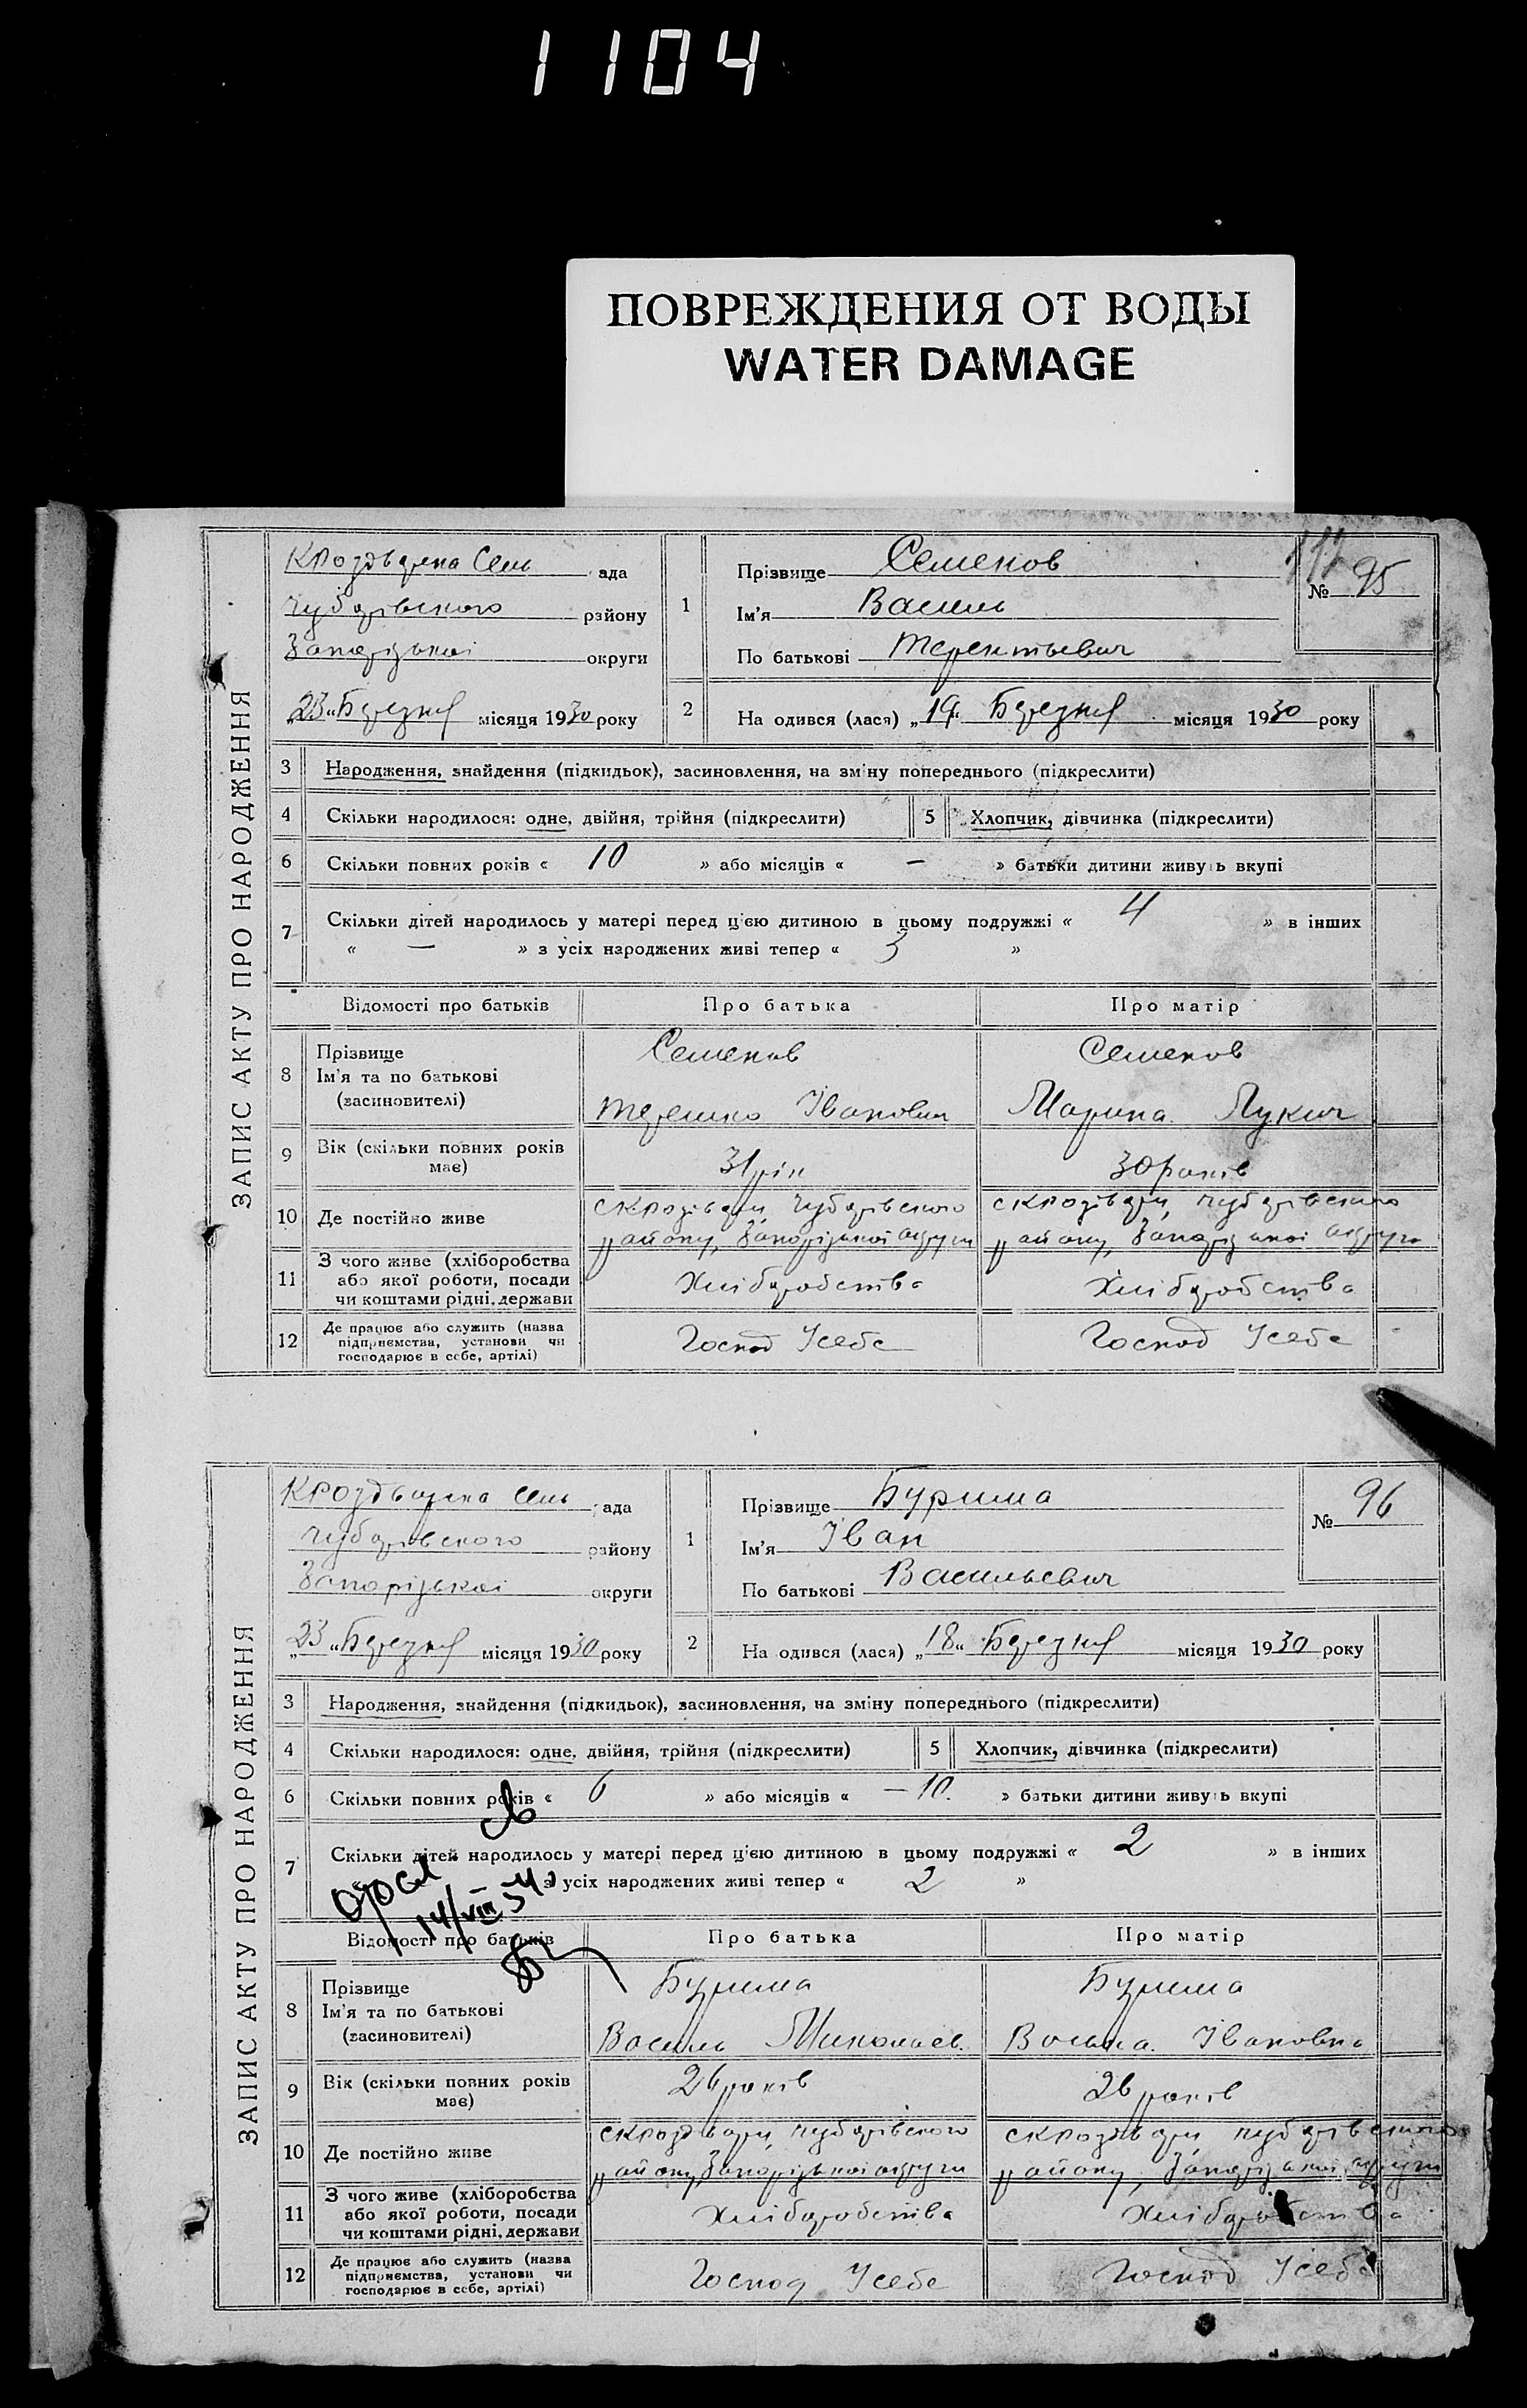 1104
ПОВРЕЖДЕНИЯ ОТ ВОДЫ
WATER DAMAGE
ЗАПИС АКТУ ПРО НАРОДЖЕННЯ
ада
Чубарівського району
Запорізької округи
„23“ Березня місяця 1930 року
1
Прізвище Семенов
Ім'я Василь
По батькові Терентьевич
№ 95
2
На одився (лася) „19“ Березня місяця 1930 року
3 Народження, знайдення (підкидьок), засиновлення, на зміну попереднього (підкреслити)
4 Скільки народилося: одне, двійня, трійня (підкреслити) 5 Хлопчик, дівчинка (підкреслити)
6 Скільки повних років « 10 » або місяців « — » батьки дитини живуть вкупі
7 Скільки дітей народилось у матері перед цією дитиною в цьому подружжі « 4 » в інших
« — » з усіх народжених живі тепер « 3 »
Відомості про батьків Про батька Про матір
8 Прізвище Семенов Семенов
Ім'я та по батькові
(засиновителі) Терешко Іванович Марина Лукич
9 Вік (скільки повних років має) 31 рік 30 років
10 Де постійно живе Чубарівського Чубарівського
району, Запорізької округи району, Запорізької округи
11 З чого живе (хліборобства
або якої роботи, посади Хліборобства Хліборобства
чи коштами рідні, держави
12 Де працює або служить (назва
підприємства, установи чи Господ Усебе Господ Усебе
господарює в себе, артілі)
ЗАПИС АКТУ ПРО НАРОДЖЕННЯ
ада
Чубарівського району
Запорізької округи
„23“ Березня місяця 1930 року
1
Прізвище Бурима
Ім'я Іван
По батькові Васильевич
№ 96
2
На одився (лася) „18“ Березня місяця 1930 року
3 Народження, знайдення (підкидьок), засиновлення, на зміну попереднього (підкреслити)
4 Скільки народилося: одне, двійня, трійня (підкреслити) 5 Хлопчик, дівчинка (підкреслити)
6 Скільки повних років « 6 » або місяців « — 10. » батьки дитини живуть вкупі
7 Скільки дітей народилось у матері перед цією дитиною в цьому подружжі « 2 » в інших
з усіх народжених живі тепер « 2 »
14/VIII
Відомості про батьків Про батька Про матір
8 Прізвище Бурима Бурима
Ім'я та по батькові
(засиновителі) Василь Миколаев. Івановна
9 Вік (скільки повних років має) 26 років 26 років
10 Де постійно живе Чубарівського Чубарівського
району, Запорізької округи району, Запорізької округи
11 З чого живе (хліборобства
або якої роботи, посади Хліборобства Хліборобства
чи коштами рідні, держави
12 Де працює або служить (назва
підприємства, установи чи Господ Усебе Господ Усебе
господарює в себе, артілі)